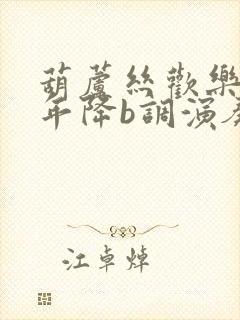 葫蘆絲歡樂
年降b調演奏
江卓焯